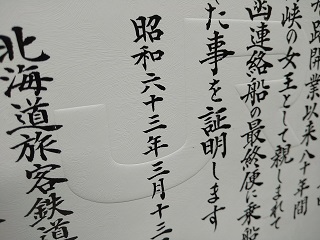 路開業以来八十年間
峡の女王として親しまれて
函連絡船の最終便に乗船
た事を証明します
昭和六十三年三月十三
北海道旅客鉄道